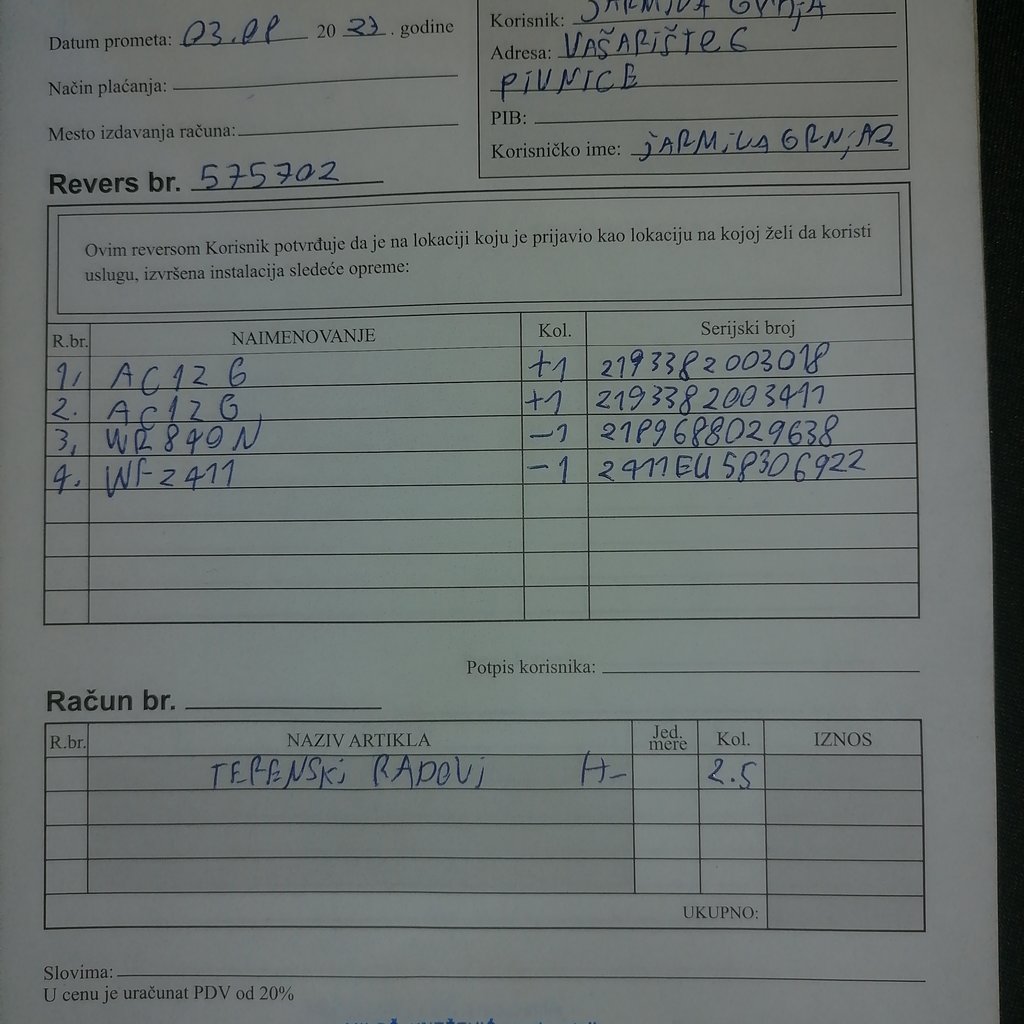 Datum prometa: 03.08 20 23. godine
Način plaćanja:
Mesto izdavanja računa:
Korisnik: JARMILA
Adresa: VAŠARIŠTE 6
PIVNICE
PIB:
Korisničko ime: JARMILA
Revers br. 575702
Ovim reversom Korisnik potvrđuje da je na lokaciji koju je prijavio kao lokaciju na kojoj želi da koristi
uslugu, izvršena instalacija sledeće opreme:
R.br. NAIMENOVANJE Kol. Serijski broj
1, AC12 G +1 2193382003018
2. AC12 G +1 2193382003411
3, WR840N -1 2189688029638
4. WF2411 -1 2411EU58306922
Potpis korisnika:
Račun br.
R.br. NAZIV ARTIKLA Jed. mere Kol. IZNOS
TERENSKI RADOVI H- 2.5
UKUPNO:
Slovima:
U cenu je uračunat PDV od 20%